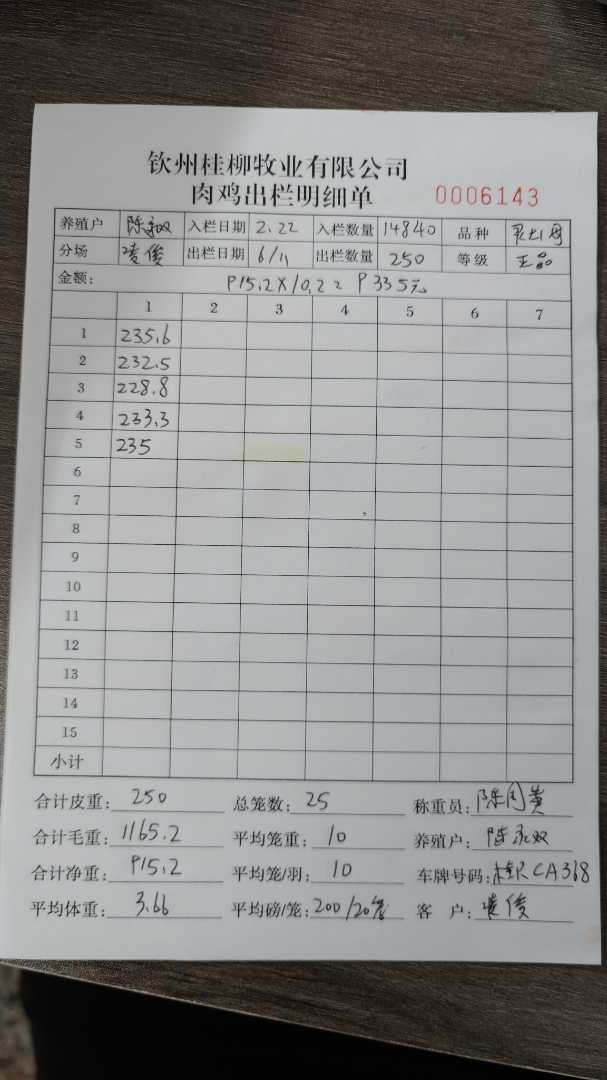 钦州桂柳牧业有限公司
肉鸡出栏明细单 0006143
养殖户 陈永双 入栏日期 2.22 入栏数量 14840 品种
分场 凌俊 出栏日期 6/11 出栏数量 250 等级 正品
金额: 915.2×10.2=9335元
1 2 3 4 5 6 7
1 235.6
2 232.5
3 228.8
4 233.3
5 235
6
7
8
9
10
11
12
13
14
15
小计
合计皮重: 250 总笼数: 25 称重员: 陈国贵
合计毛重: 1165.2 平均笼重: 10 养殖户: 陈永双
合计净重: 915.2 平均笼/羽: 10 车牌号码: CA368
平均体重: 3.66 平均磅/笼: 200/20 客户: 凌俊